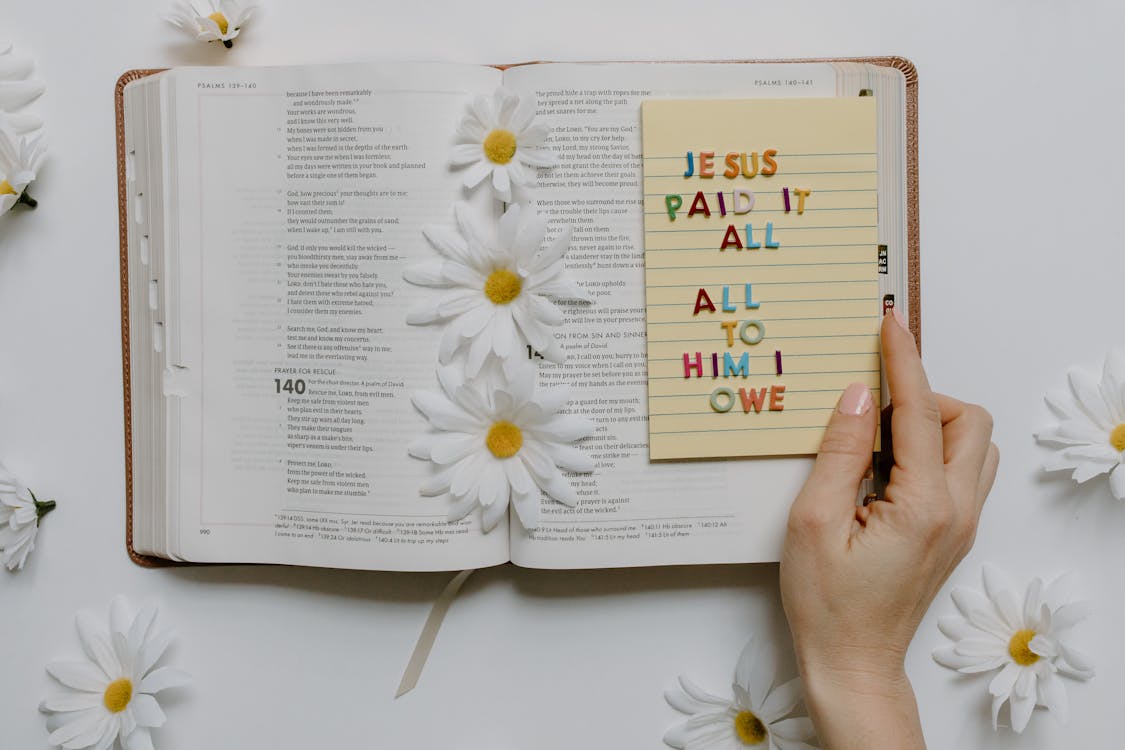 PSALMS 139–140
because I have been remarkably
and wondrously made.
Your works are wondrous,
and I know this very well.
My bones were not hidden from you
when I was made in secret,
when I was formed in the depths of the earth.
Your eyes saw me when I was formless;
all my days were written in your book and planned
before a single one of them began.
God, how precious your thoughts are to me;
how vast their sum is!
If I counted them,
they would outnumber the grains of sand;
when I wake up, I am still with you.
God, if only you would kill the wicked —
you bloodthirsty men, stay away from me —
who invoke you deceitfully.
Your enemies swear by you falsely.
LORD, don't I hate those who hate you,
and detest those who rebel against you?
I hate them with extreme hatred;
I consider them my enemies.
Search me, God, and know my heart;
test me and know my concerns.
See if there is any offensive way in me;
lead me in the everlasting way.
PRAYER FOR RESCUE
140 For the choir director. A psalm of David.
Rescue me, LORD, from evil men.
Keep me safe from violent men
who plan evil in their hearts.
They stir up wars all day long.
They make their tongues
as sharp as a snake's bite;
viper's venom is under their lips.
Protect me, LORD,
from the power of the wicked.
Keep me safe from violent men
who plan to make me stumble.
990
PSALMS 140–141
proud hide a trap with ropes for me;
they spread a net along the path
and set snares for me.
to the LORD, "You are my God."
LORD, to my cry for help.
my strong Savior,
my head on the day of
do not grant the desires of the
do not let them achieve their goals.
Otherwise, they will become proud.
When those who surround me rise up
the trouble their lips cause
overwhelm them.
fall on them.
thrown into the fire,
never again to rise.
a slanderer stay in the land
hunt down a
LORD upholds
the poor,
for the needy
righteous will praise your
will live in your presence.
FROM SIN AND SINNERS
A psalm of David.
LORD, I call on you; hurry to
Listen to my voice when I call on you.
May my prayer be set before you as
the raising of my hands as the
a guard for my mouth;
watch at the door of my lips.
acts
commit sin.
on their delicacies
one strike me —
love;
rebuke me
my head;
refuse it.
Even my prayer is against
the evil acts of the wicked.
JESUS
PAID IT
ALL
ALL
TO
HIM I
OWE